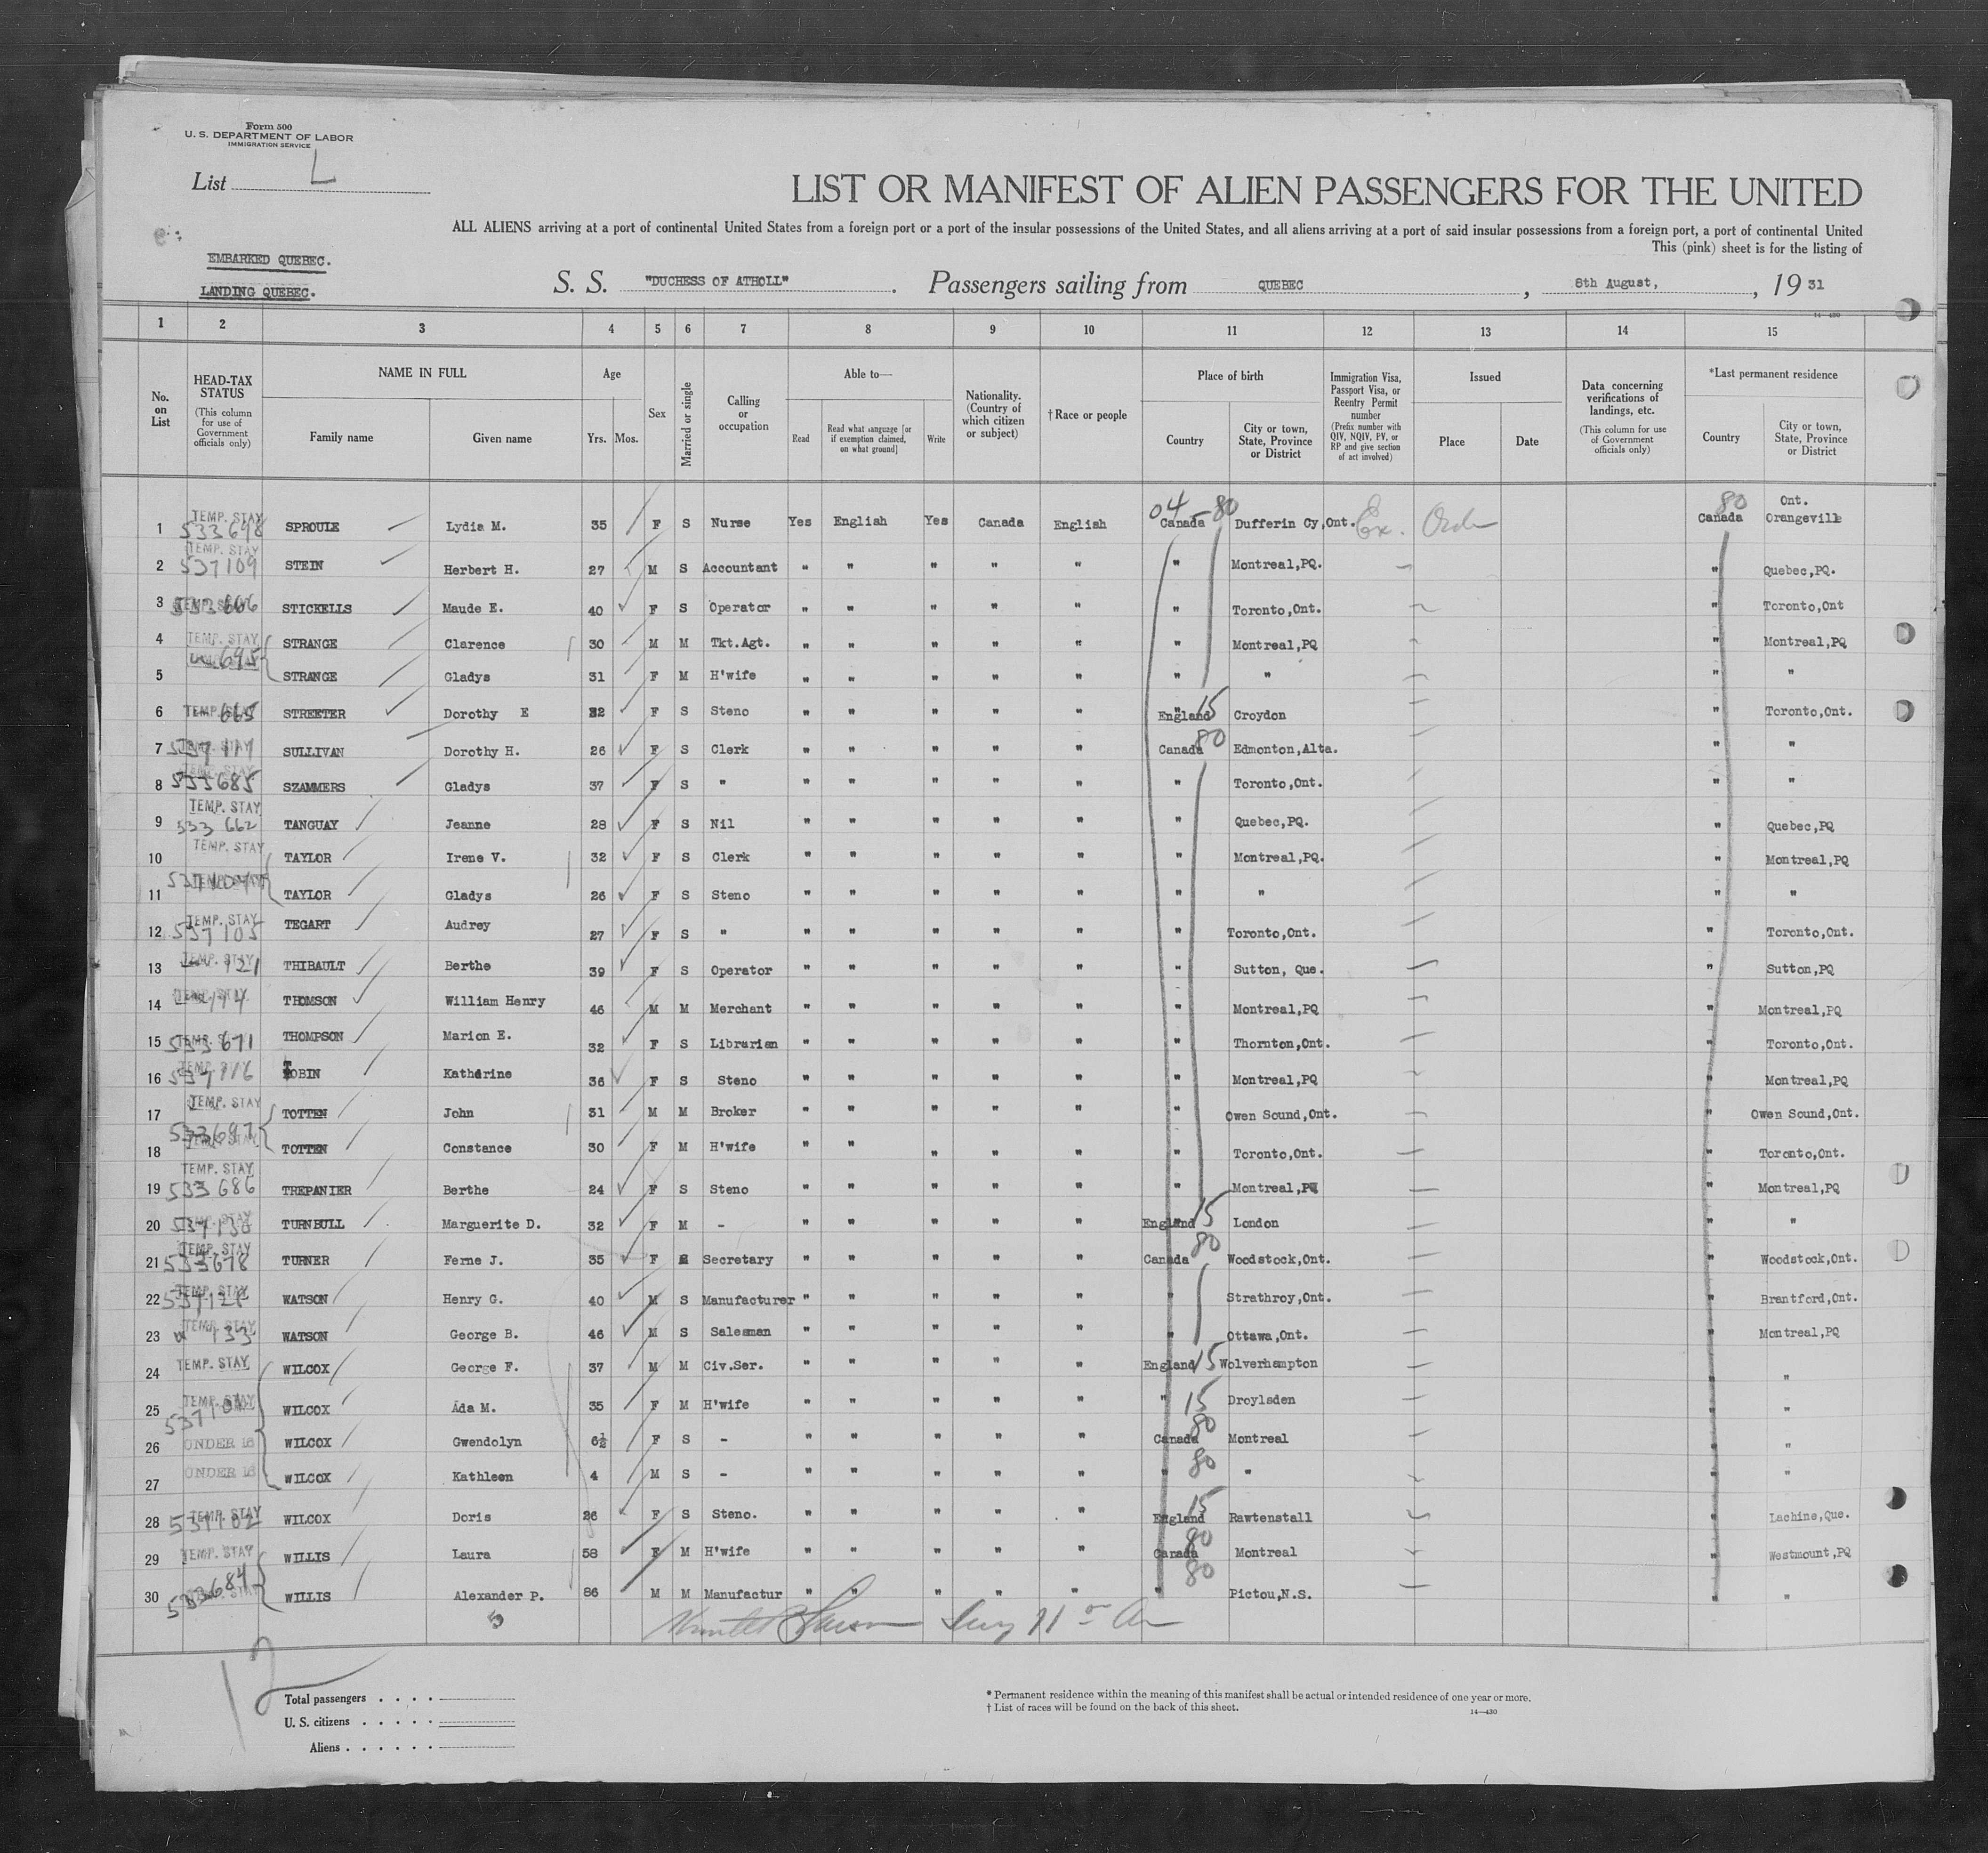 Form 500
U. S. DEPARTMENT OF LABOR
IMMIGRATION SERVICE
List L
LIST OR MANIFEST OF ALIEN PASSENGERS FOR THE UNITED
ALL ALIENS arriving at a port of continental United States from a foreign port or a port of the insular possessions of the United States, and all aliens arriving at a port of said insular possessions from a foreign port, a port of continental United
This (pink) sheet is for the listing of
EMBARKED QUEBEC.
LANDING QUEBEC.
S. S. "DUCHESS OF ATHOLL". Passengers sailing from QUEBEC, 8th August, , 19 31
14-430
1 2 3 4 5 6 7 8 9 10 11 12 13 14 15
No. on List
HEAD-TAX STATUS (This column for use of Government officials only)
NAME IN FULL Family name Given name
Age Yrs. Mos.
Sex
Married or single
Calling or occupation
Able to— Read Read what language [or if exemption claimed, on what ground] Write
Nationality. (Country of which citizen or subject)
†Race or people
Place of birth Country City or town, State, Province or District
Immigration Visa, Passport Visa, or Reentry Permit number (Prefix number with QIV, NQIV, PV, or RP and give section of act involved)
Issued Place Date
Data concerning verifications of landings, etc. (This column for use of Government officials only)
*Last permanent residence Country City or town, State, Province or District
1 TEMP. STAY 533698 SPROULE Lydia M. 35 F S Nurse Yes English Yes Canada English 04 Canada 80 Dufferin Cy,Ont. Ex. Order 80 Canada Ont. Orangeville
2 TEMP. STAY 537109 STEIN Herbert H. 27 M S Accountant " " " " " " Montreal,PQ. " Quebec,PQ.
3 TEMP. STAY STICKELLS Maude E. 40 F S Operator " " " " " " Toronto,Ont. " Toronto,Ont
4 TEMP. STAY 695 STRANGE Clarence 30 M M Tkt.Agt. " " " " " " Montreal,PQ " Montreal,PQ
5 STRANGE Gladys 31 F M H'wife " " " " " " " " "
6 TEMP. STAY 665 STREETER Dorothy E 32 F S Steno " " " " " England 15 Croydon " Toronto,Ont.
7 TEMP. STAY SULLIVAN Dorothy H. 26 F S Clerk " " " " " Canada 80 Edmonton,Alta. " "
8 TEMP. STAY 533685 SZAMMERS Gladys 37 F S " " " " " " " Toronto,Ont. " "
9 TEMP. STAY 533 662 TANGUAY Jeanne 28 F S Nil " " " " " " Quebec,PQ. " Quebec,PQ
10 TEMP. STAY TAYLOR Irene V. 32 F S Clerk " " " " " " Montreal,PQ. " Montreal,PQ
11 TEMP. STAY TAYLOR Gladys 26 F S Steno " " " " " " " " "
12 TEMP. STAY 537105 TEGART Audrey 27 F S " " " " " " " Toronto,Ont. " Toronto,Ont.
13 TEMP. STAY 121 THIBAULT Berthe 39 F S Operator " " " " " " Sutton, Que. " Sutton,PQ
14 TEMP. STAY THOMSON William Henry 46 M M Merchant " " " " " " Montreal,PQ " Montreal,PQ
15 TEMP. STAY 533671 THOMPSON Marion E. 32 F S Librarian " " " " " " Thornton,Ont. " Toronto,Ont.
16 TEMP. STAY 537116 TOBIN Katherine 36 F S Steno " " " " " " Montreal,PQ " Montreal,PQ
17 TEMP. STAY TOTTEN John 31 M M Broker " " " " " " Owen Sound,Ont. " Owen Sound,Ont.
18 533697 TEMP. STAY TOTTEN Constance 30 F M H'wife " " " " " " Toronto,Ont. " Toronto,Ont.
19 TEMP. STAY 533 686 TREPANIER Berthe 24 F S Steno " " " " " " Montreal,PQ " Montreal,PQ
20 TEMP. STAY TURNBULL Marguerite D. 32 F M - " " " " " England 15 London " "
21 TEMP. STAY 533678 TURNER Ferne J. 35 F S Secretary " " " " " Canada 80 Woodstock,Ont. " Woodstock,Ont.
22 TEMP. STAY 537128 WATSON Henry G. 40 M S Manufacturer " " " " " " Strathroy,Ont. " Brantford,Ont.
23 TEMP. STAY " 133 WATSON George B. 46 M S Salesman " " " " " " Ottawa,Ont. " Montreal,PQ
24 TEMP. STAY WILCOX George F. 37 M M Civ.Ser. " " " " " England 15 Wolverhampton " "
25 TEMP. STAY 537101 WILCOX Ada M. 35 F M H'wife " " " " " " 15 Droylsden " "
26 UNDER 16 WILCOX Gwendolyn 6½ F S - " " " " " Canada 80 Montreal " "
27 UNDER 16 WILCOX Kathleen 4 M S - " " " " " " 80 " " "
28 TEMP. STAY 537102 WILCOX Doris 26 F S Steno. " " " " " England 15 Rawtenstall " Lachine,Que.
29 TEMP. STAY WILLIS Laura 58 F M H'wife " " " " " Canada 80 Montreal " Westmount,PQ
30 533684 TEMP. STAY WILLIS Alexander P. 86 M M Manufactur " " " " " " 80 Pictou,N.S. " "
12
Total passengers
U. S. citizens
Aliens
* Permanent residence within the meaning of this manifest shall be actual or intended residence of one year or more.
† List of races will be found on the back of this sheet.
14—430